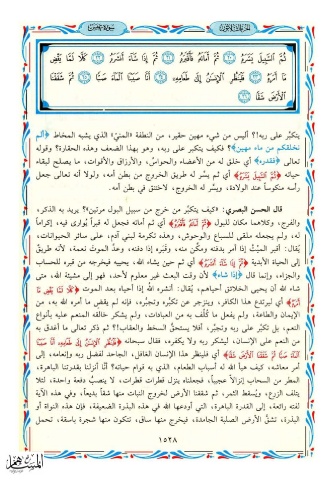 الجزء الثلاثون
سورة عبس
ثُمَّ السَّبِيلَ يَسَّرَهُ ٢٠ ثُمَّ أَمَاتَهُ فَأَقْبَرَهُ ٢١ ثُمَّ إِذَا شَاءَ أَنْشَرَهُ ٢٢ كَلَّا لَمَّا يَقْضِ
مَا أَمَرَهُ ٢٣ فَلْيَنْظُرِ الْإِنْسَانُ إِلَى طَعَامِهِ ٢٤ أَنَّا صَبَبْنَا الْمَاءَ صَبًّا ٢٥ ثُمَّ شَقَقْنَا
الْأَرْضَ شَقًّا ٢٦
يتكبَّر على ربه!؟ أليس من شيء مهين حقير، من النطفة «المنيّ» الذي يشبه المخاط ﴿ألم
نخلقكم من ماء مهين﴾؟ فكيف يتكبر على ربه، وهو بهذا الضعف وهذه الحقارة؟ وقوله
تعالى ﴿فقدره﴾ أي خلق له من الأعضاء والحواسّ، والأرزاق والأقوات، ما يصلح لبقاء
حياته ﴿ثُمَّ السَّبِيلَ يَسَّرَهُ﴾ أي ثم يسر له طريق الخروج من بطن أمه، ولولا أنه تعالى جعل
رأسه منكوساً عند الولادة، ويسَّر له الخروج، لاختنق في بطن أمه.
قال الحسن البصري: «كيف يتكبَّر من خرج من سبيل البول مرتين»؟ يريد به الذكر،
والفرج، وكلاهما مكان للبول ﴿ثُمَّ أَمَاتَهُ فَأَقْبَرَهُ﴾ أي ثم أماته فجعل له قبراً يُوارى فيه، إكراماً
له، ولم يجعله ملقى للسباع والوحوش، وهذه تكرمة لبني آدم، على سائر الحيوانات،
يُقال: أقبر الميِّتَ إذا أمر بدفنه ومكَّن منه، وقَبَره إذا دفنه، وعدَّ الموت نعمة، لأنه طريقٌ
إلى الحياة الأبدية ﴿ثُمَّ إِذَا شَاءَ أَنْشَرَهُ﴾ أي ثم حين يشاء الله، يحييه فيخرجه من قبره للحساب
والجزاء، وإنما قال ﴿إذا شاء﴾ لأن وقت البعث غير معلوم لأحد، فهو إلى مشيئة الله، متى
شاء الله أن يحيي الخلائق أحياهم، يُقال: أنشره الله إذا أحياه بعد الموت ﴿كَلَّا لَمَّا يَقْضِ مَا
أَمَرَهُ﴾ أي ليرتدع هذا الكافر، وينزجر عن تكبُّره وتجبُّره، فإنه لم يقض ما أمره الله به، من
الإيمان والطاعة، ولم يفعل ما كُلِّف به من العبادات، ولم يشكر خالقه المنعم عليه بأنواع
النعم، بل تكبَّر على ربه وتجبَّر، أفلا يستحقُّ السخط والعقاب!؟ ثم ذكر تعالى ما أغدق به
من النعم على الإنسان، ليشكر ربه ولا يكفره، فقال سبحانه ﴿فَلْيَنْظُرِ الْإِنْسَانُ إِلَى طَعَامِهِ. أَنَّا صَبَبْنَا
الْمَاءَ صَبًّا. ثُمَّ شَقَقْنَا الْأَرْضَ شَقًّا﴾ أي فلينظر هذا الإنسان الغافل، الجاحد لفضل ربه وإنعامه، إلى
أمر معاشه، كيف هيأ الله له أسباب الطعام، الذي به قوام حياته؟ أنَّا أنزلنا بقدرتنا الباهرة،
المطر من السحاب إنزالاً عجيباً، فجعلناه ينزل قطرات قطرات، لا ينصبُّ دفعة واحدة، لئلا
يتلف الزرع، ويُفسد الثمر، ثم شققنا الأرض لخروج النبات منها شقاً بديعاً، وفي هذه الآية
لفته رائعة، إلى القدرة الباهرة، التي أودعها الله في هذه البذرة الضعيفة، فإن هذه النواة أو
البذرة، تشقُّ الأرض الصلبة الجامدة، فيخرج منها ساق، تتكون منها شجرة باسقة، تحمل
١٥٢٨